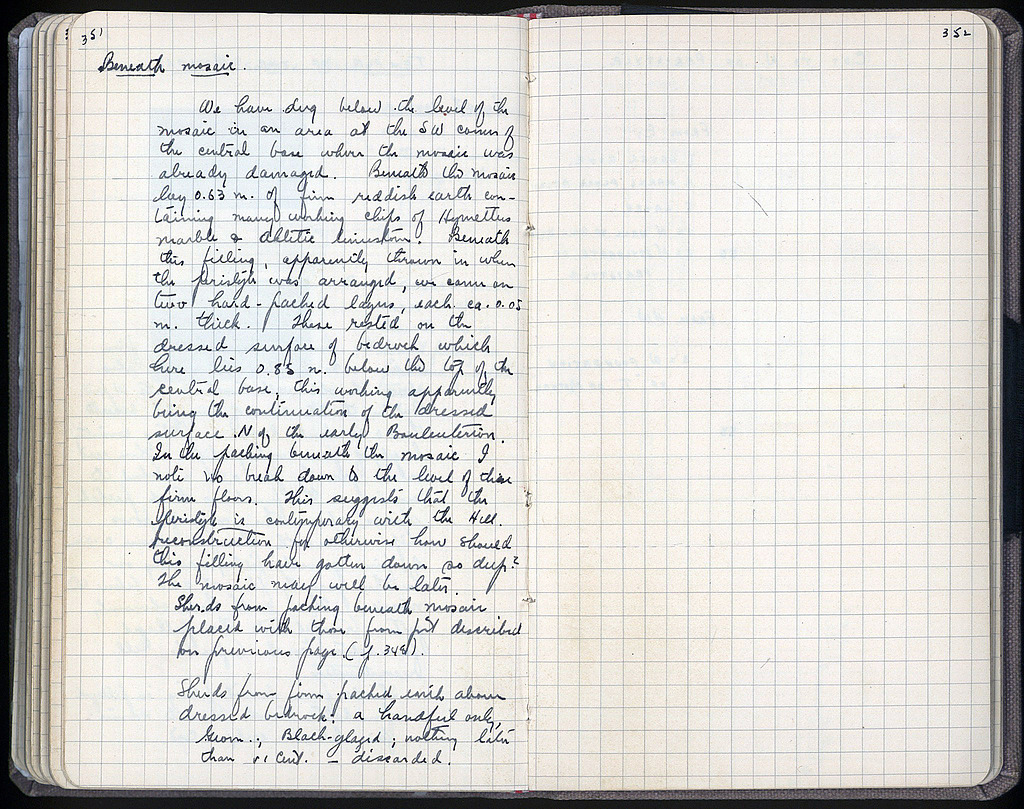 351
Beneath mosaic.
We have dug below the level of the
mosaic in an area at the SW corner of
the central base where the mosaic was
already damaged. Beneath the mosaic
lay 0.63 m. of firm reddish earth con-
taining many working chips of Hymettus
marble & limestone. Beneath
this filling, apparently thrown in when
the peristyle was arranged, we came on
two hard-packed layers, each ca. 0.05
m. thick. These rested on the
dressed surface of bedrock which
here lies 0.85 m. below the top of the
central base, this working apparently
being the continuation of the dressed
surface N of the early Bouleuterion.
In the packing beneath the mosaic I
note no break down to the level of these
firm floors. This suggests that the
peristyle is contemporary with the Hell.
reconstruction for otherwise how should
this filling have gotten down so deep?
The mosaic may well be later.
Sherds from packing beneath mosaic
placed with those from pit described
on previous page. (p. 349).
Sherds from firm packed earth above
dressed bedrock: a handful only,
Geom.; Black-glazed; nothing later
than vi cent. - discarded.
352